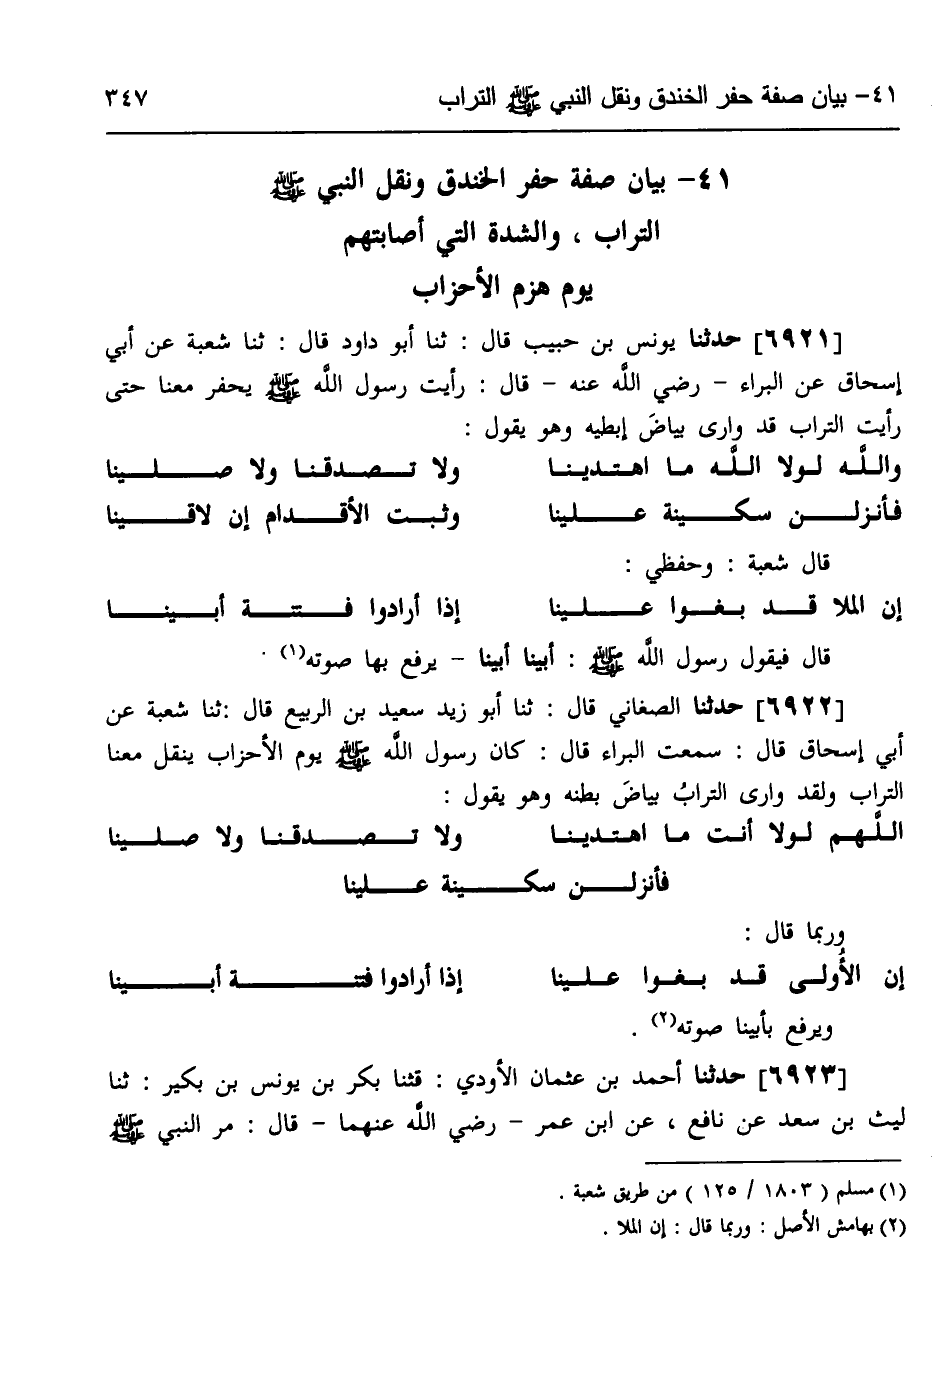 ٤١- بيان صفة حفر الخندق ونقل النبي ﷺ التراب ٣٤٧
٤١- بيان صفة حفر الخندق ونقل النبي ﷺ
التراب ، والشدة التي أصابتهم
يوم هزم الأحزاب
[٦٩٢١] حدثنا يونس بن حبيب قال : ثنا أبو داود قال : ثنا شعبة عن أبي
إسحاق عن البراء - رضي اللَّه عنه - قال : رأيت رسول اللَّه ﷺ يحفر معنا حتى
رأيت التراب قد وارى بياضَ إبطيه وهو يقول :
واللَّه لولا اللَّه ما اهتدينا ولا تصدقنا ولا صلينا
فأنزلن سكينة علينا وثبت الأقدام إن لاقينا
قال شعبة : وحفظي :
إن الملا قد بغوا علينا إذا أرادوا فتنة أبينا
قال فيقول رسول اللَّه ﷺ : أبينا أبينا - يرفع بها صوته(١) .
[٦٩٢٢] حدثنا الصغاني قال : ثنا أبو زيد سعيد بن الربيع قال :ثنا شعبة عن
أبي إسحاق قال : سمعت البراء قال : كان رسول اللَّه ﷺ يوم الأحزاب ينقل معنا
التراب ولقد وارى الترابُ بياضَ بطنه وهو يقول :
اللَّهم لولا أنت ما اهتدينا ولا تصدقنا ولا صلينا
فأنزلن سكينة علينا
وربما قال :
إن الأُولى قد بغوا علينا إذا أرادوا فتنة أبينا
ويرفع بأبينا صوته(٢) .
[٦٩٢٣] حدثنا أحمد بن عثمان الأودي : قثنا بكر بن يونس بن بكير : ثنا
ليث بن سعد عن نافع ، عن ابن عمر - رضي اللَّه عنهما - قال : مر النبي ﷺ
(١) مسلم ( ١٨٠٣ / ١٢٥ ) من طريق شعبة .
(٢) بهامش الأصل : وربما قال : إن الملا .